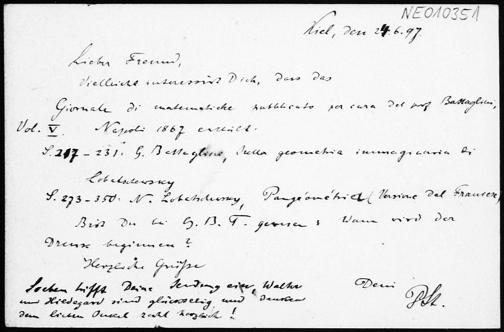 NEO10351
Kiel, den 24.6.97.
Lieber Freund,
Vielleicht interessirt Dich, dass das
Giornale di matematiche pubblicato per cura del prof Battaglini,
Vol. V. Napoli 1867 enthält:
S. 217-231. G. Battaglini, sulla geometria immaginaria di
Lobatschewsky
S. 273-350. N. Lobatschewsky, Pangéométrie (Versione dal Francese)
Bist Du bei G. B. T. gewesen? Wann wird der
Druck beginnen?
Herzliche Grüsse
Dein
PSt.
Soeben trifft Deine Sendung ein, Walter
und Hildegard sind glückselig und danken
dem lieben Onkel recht herzlich!